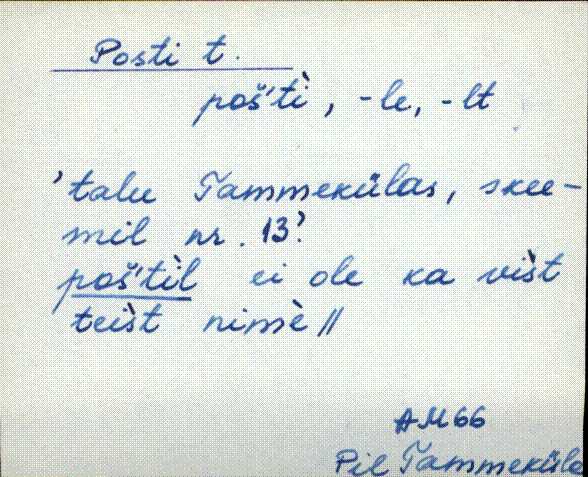 Posti t.
poš'tì, -le, -lt
'talu Tammekülas, skee-
mil nr. 13?
poš'tìl ei ole ka vìšt
teìšt nimè //
AM66
Pil Tammeküla